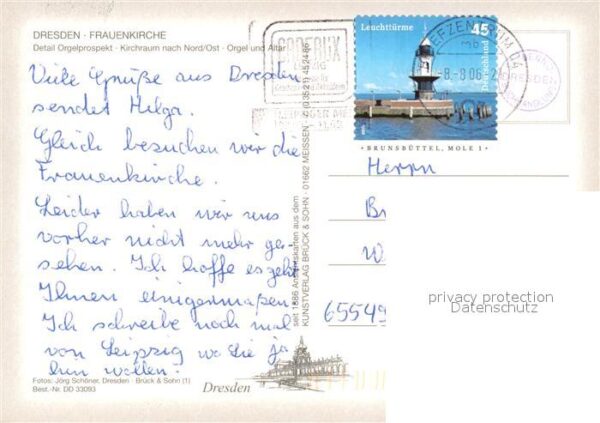 DRESDEN - FRAUENKIRCHE
Detail Orgelprospekt - Kirchraum nach Nord/Ost - Orgel und Altar
Viele Grüße aus Dresden
sendet Helga.
Gleich besuchen wir die
Frauenkirche.
Leider haben wir uns
vorher nicht mehr ge-
sehen. Ich hoffe es geht
Ihnen einigermaßen.
Ich schreibe noch mal
von Leipzig wo Sie ja
hin wollen.
Fotos: Jörg Schöner, Dresden Brück & Sohn (1)
Best.-Nr. DD 33093
Dresden
seit 1886 Ansichtskarten aus dem
KUNSTVERLAG BRÜCK & SOHN · 01662 MEISSEN · ✆ (0 35 21) 45 24 86
Leuchttürme
45
Deutschland
BRUNSBÜTTEL, MOLE 1
-8.-8.06
DRESDEN
Herrn
Br
W
65549
privacy protection
Datenschutz